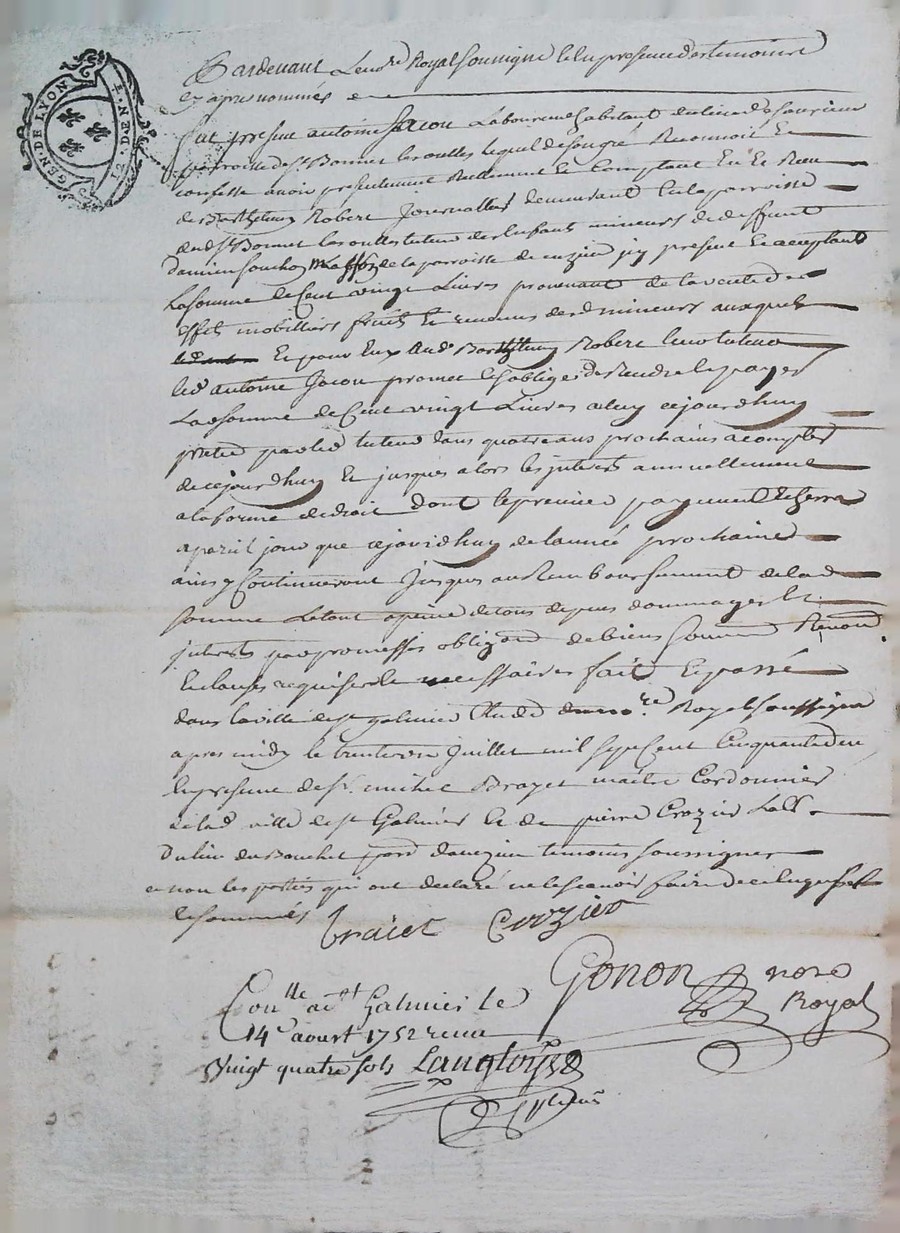 GEN. DE LYON
Pardevant Le no.re Royal soussigné et en presence des temoins
cy apres nommés
fut present antoine Jacou Laboureur habitant du lieu de
parroisse de St. Bonnet les oulles lequel de son gré Reconnoit Et
confesse avoir presentement Reellement Et Comptant Eu Et Receu
de Barthelemy Robert Journallier demeurant en la parroisse
dud St. Bonnet les oulles tuteur des Enfants mineurs de deffunt
damien souchon de la parroisse de cuzieu icy present Et acceptant
La somme de Cent vingt Livres provenant de la vente des
Effets mobilliers fruits Et revenus desd mineurs auxquels
Et pour Eux aud Barthelemy Robert leur tuteur
led antoine Jacou promet Et s'oblige de Rendre Et payer
Lad somme de Cent vingt Livres a luy cejourdhuy
pretée par led tuteur dans quatre ans prochains a compter
de cejourdhuy Et jusques alors les interets annuellement
a la forme de droit dont le premier payement Echerra
a pareil jour que cejourdhuy de l'année prochaine
ainsy Continueront Jusques au Remboursement de lad
somme Le tout a peine de tous depens dommages Et
interets par promesses obligaon de biens soumon Renon
Et clauses requises Et necessaires fait Et passé
dans la ville de st galmier Etude du no.re Royal soussigné
apres midy le trente Juillet mil sept Cent Cinquante deux
En presence de sr. michel Brayet maitre Cordonnier
de lad ville de st Galmier Et de pierre Crozier Labr
du lieu du Bouchet parr de cuzieu temoins soussignes
et non les parties qui ont declaré ne le scavoir faire de ce Enquises Et
Et sommées Braiet Crozier
Gonon nore
Royal
Conlle a st Galmier le
14e aoust 1752 receu
Vingt quatre sols Langloys